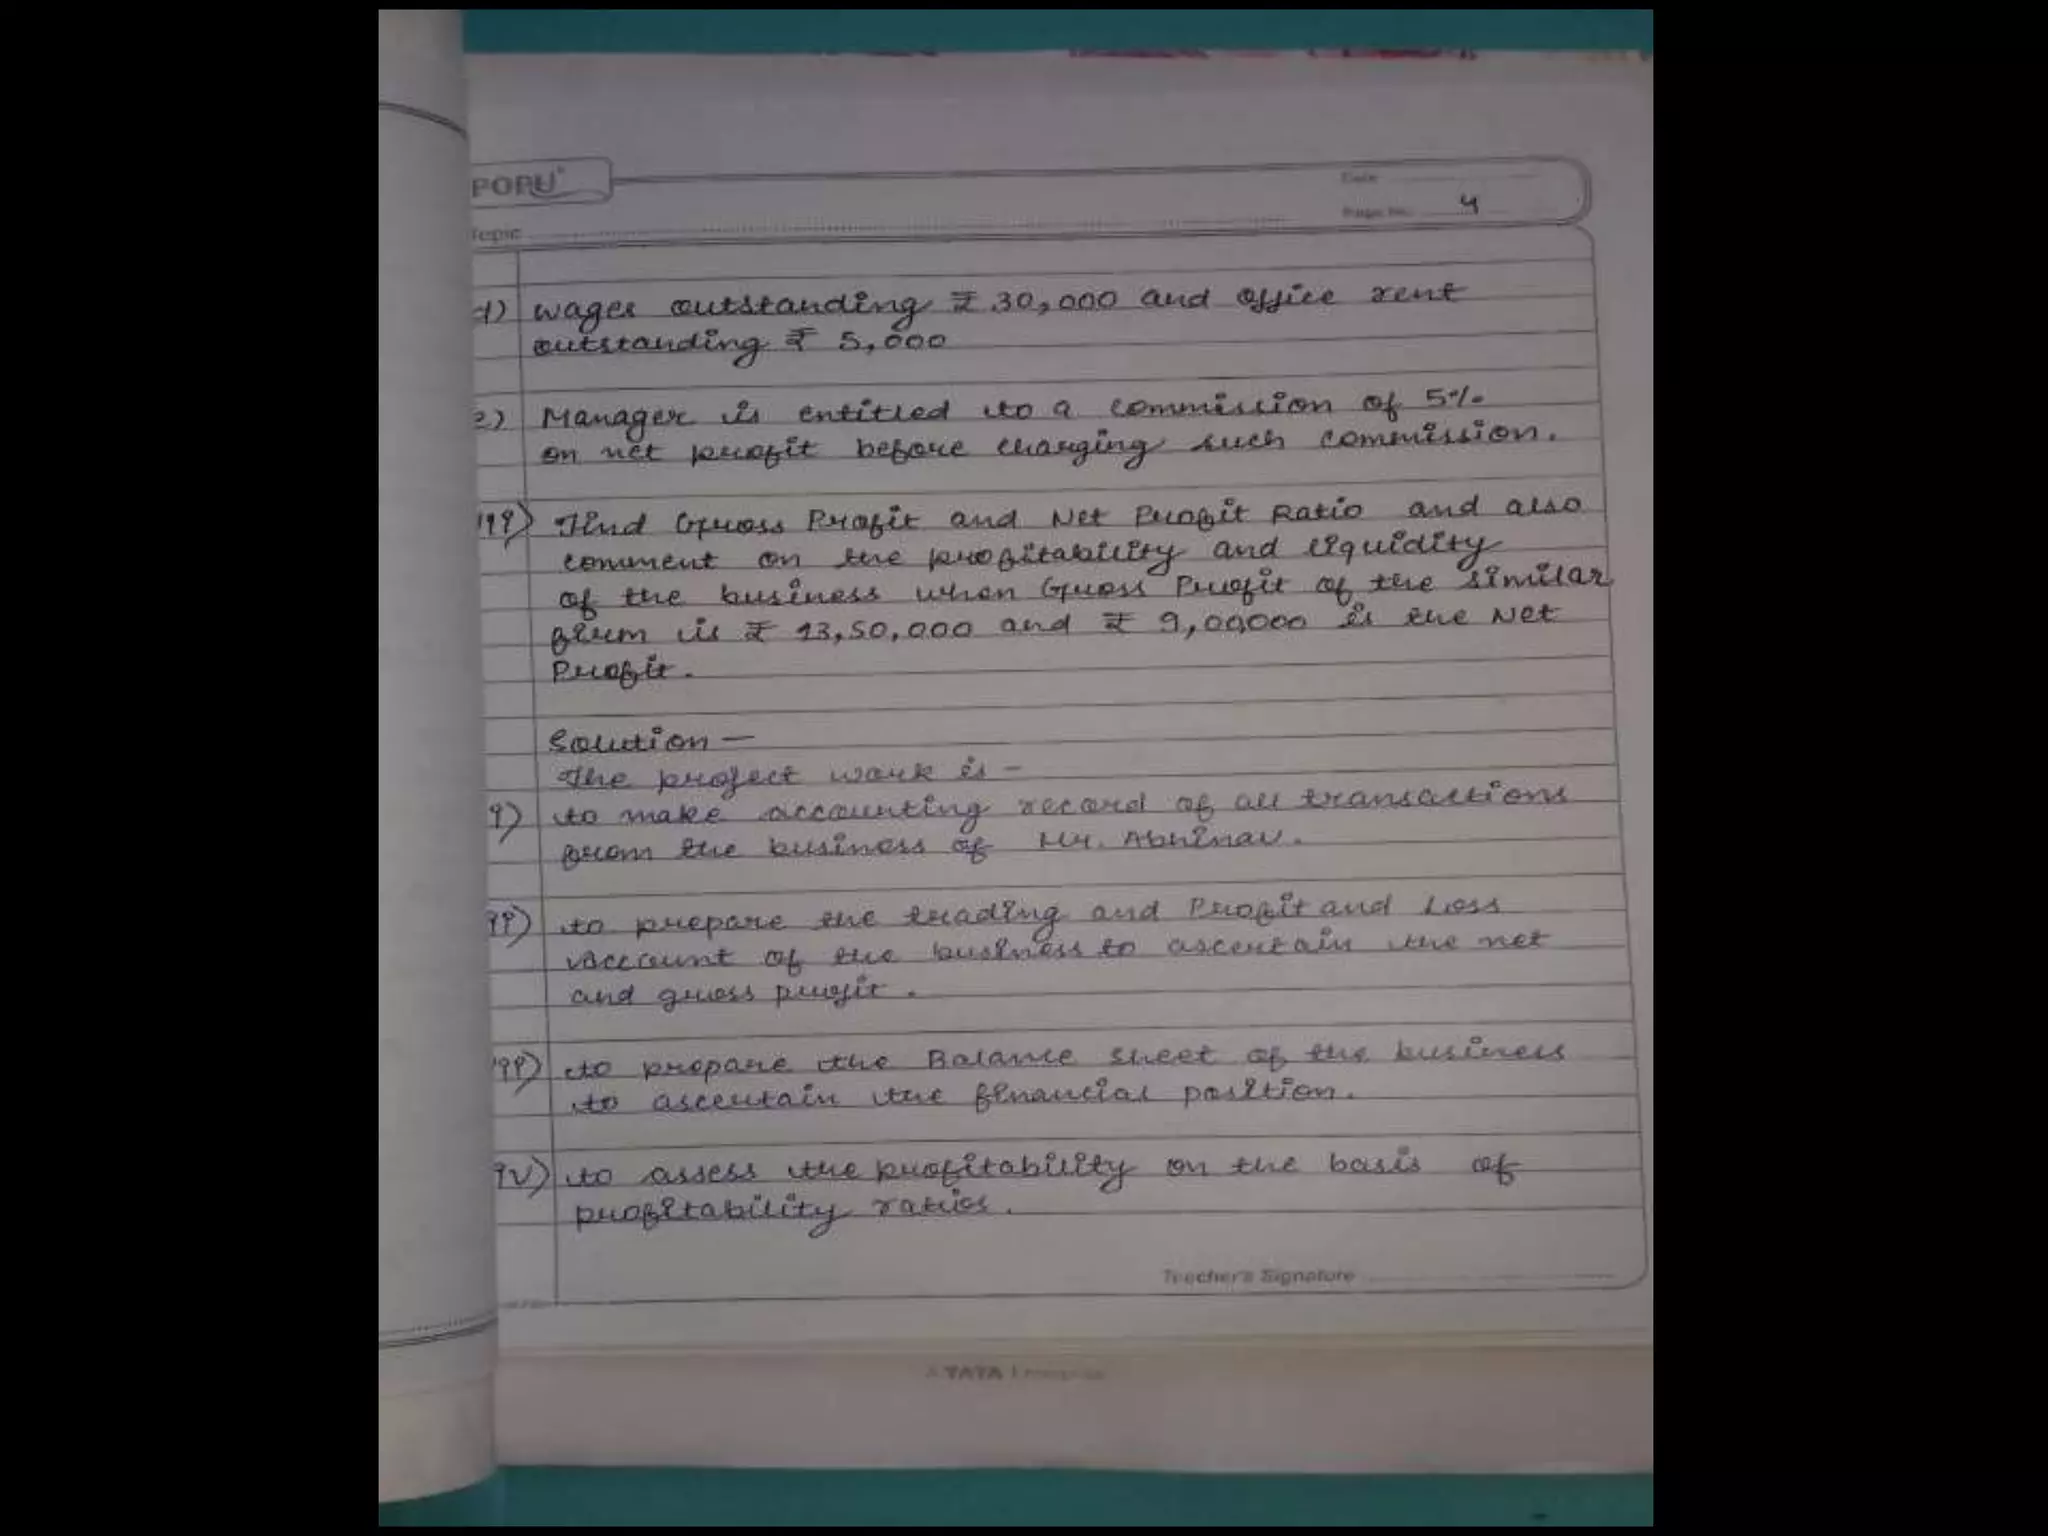 POPU
Date
Page No. 4
Topic
d) wages outstanding ₹ 30,000 and office rent
outstanding ₹ 5,000
e) Manager is entitled to a commission of 5%
on net profit before charging such commission.
iii) Find Gross Profit and Net Profit Ratio and also
comment on the profitability and liquidity
of the business when Gross Profit of the similar
firm is ₹ 13,50,000 and ₹ 9,00,000 is the Net
Profit.
Solution —
The project work is -
i) to make accounting record of all transactions
from the business of Mr. Abhinav.
ii) to prepare the trading and Profit and Loss
Account of the business to ascertain the net
and gross profit.
iii) to prepare the Balance sheet of the business
to ascertain the financial position.
iv) to assess the profitability on the basis of
profitability ratios.
Teacher's Signature
A TATA Enterprise